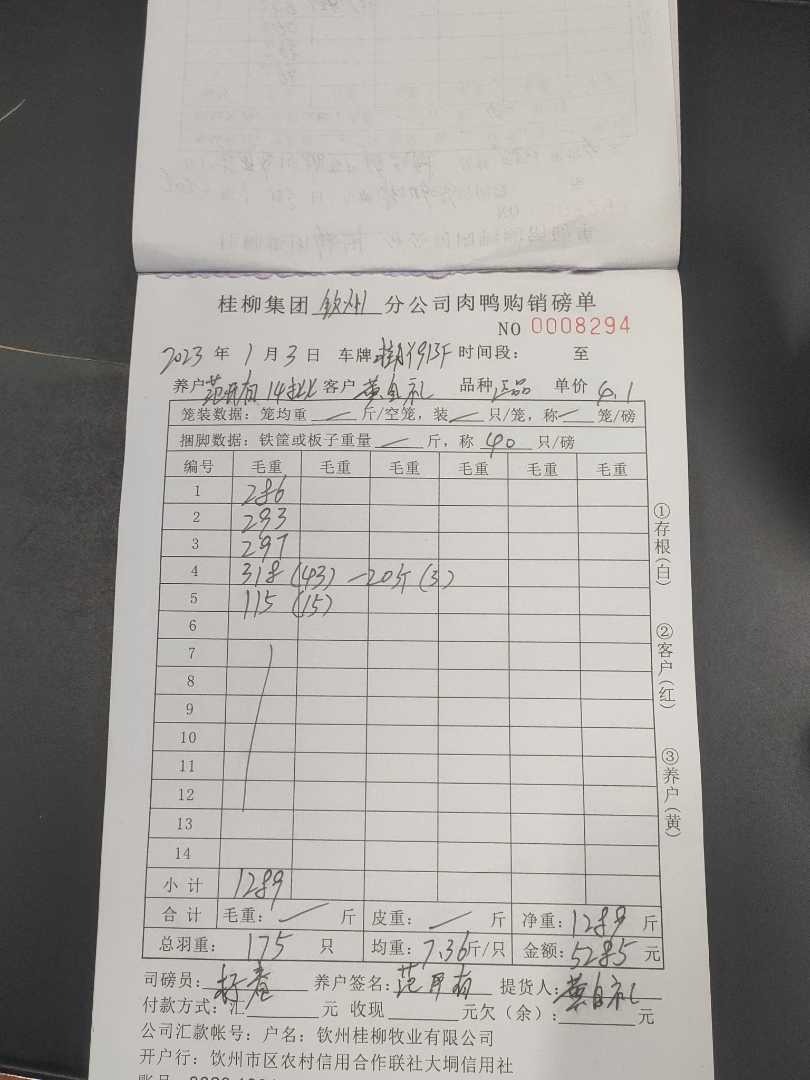 桂柳集团 钦州 分公司肉鸭购销磅单
NO 0008294
2023 年 1 月 3 日 车牌 时间段： 至
养户 范开有 14批 客户 黄自礼 品种 正品 单价 4.1
笼装数据：笼均重 斤/空笼，装 只/笼，称 笼/磅
捆脚数据：铁筐或板子重量 斤，称 40 只/磅
编号 毛重 毛重 毛重 毛重 毛重 毛重
1 286
2 293
3 297
4 318 (43) -20斤 (3)
5 115 (15)
6
7
8
9
10
11
12
13
14
小计 1289
合计 毛重： 斤 皮重： 斤 净重：1289 斤
总羽重： 175 只 均重：7.36 斤/只 金额：5285 元
司磅员： 养户签名： 提货人：黄自礼
付款方式：汇 元 收现 元欠（余）： 元
公司汇款帐号：户名：钦州桂柳牧业有限公司
开户行：钦州市区农村信用合作联社大垌信用社
①存根(白)
②客户(红)
③养户(黄)